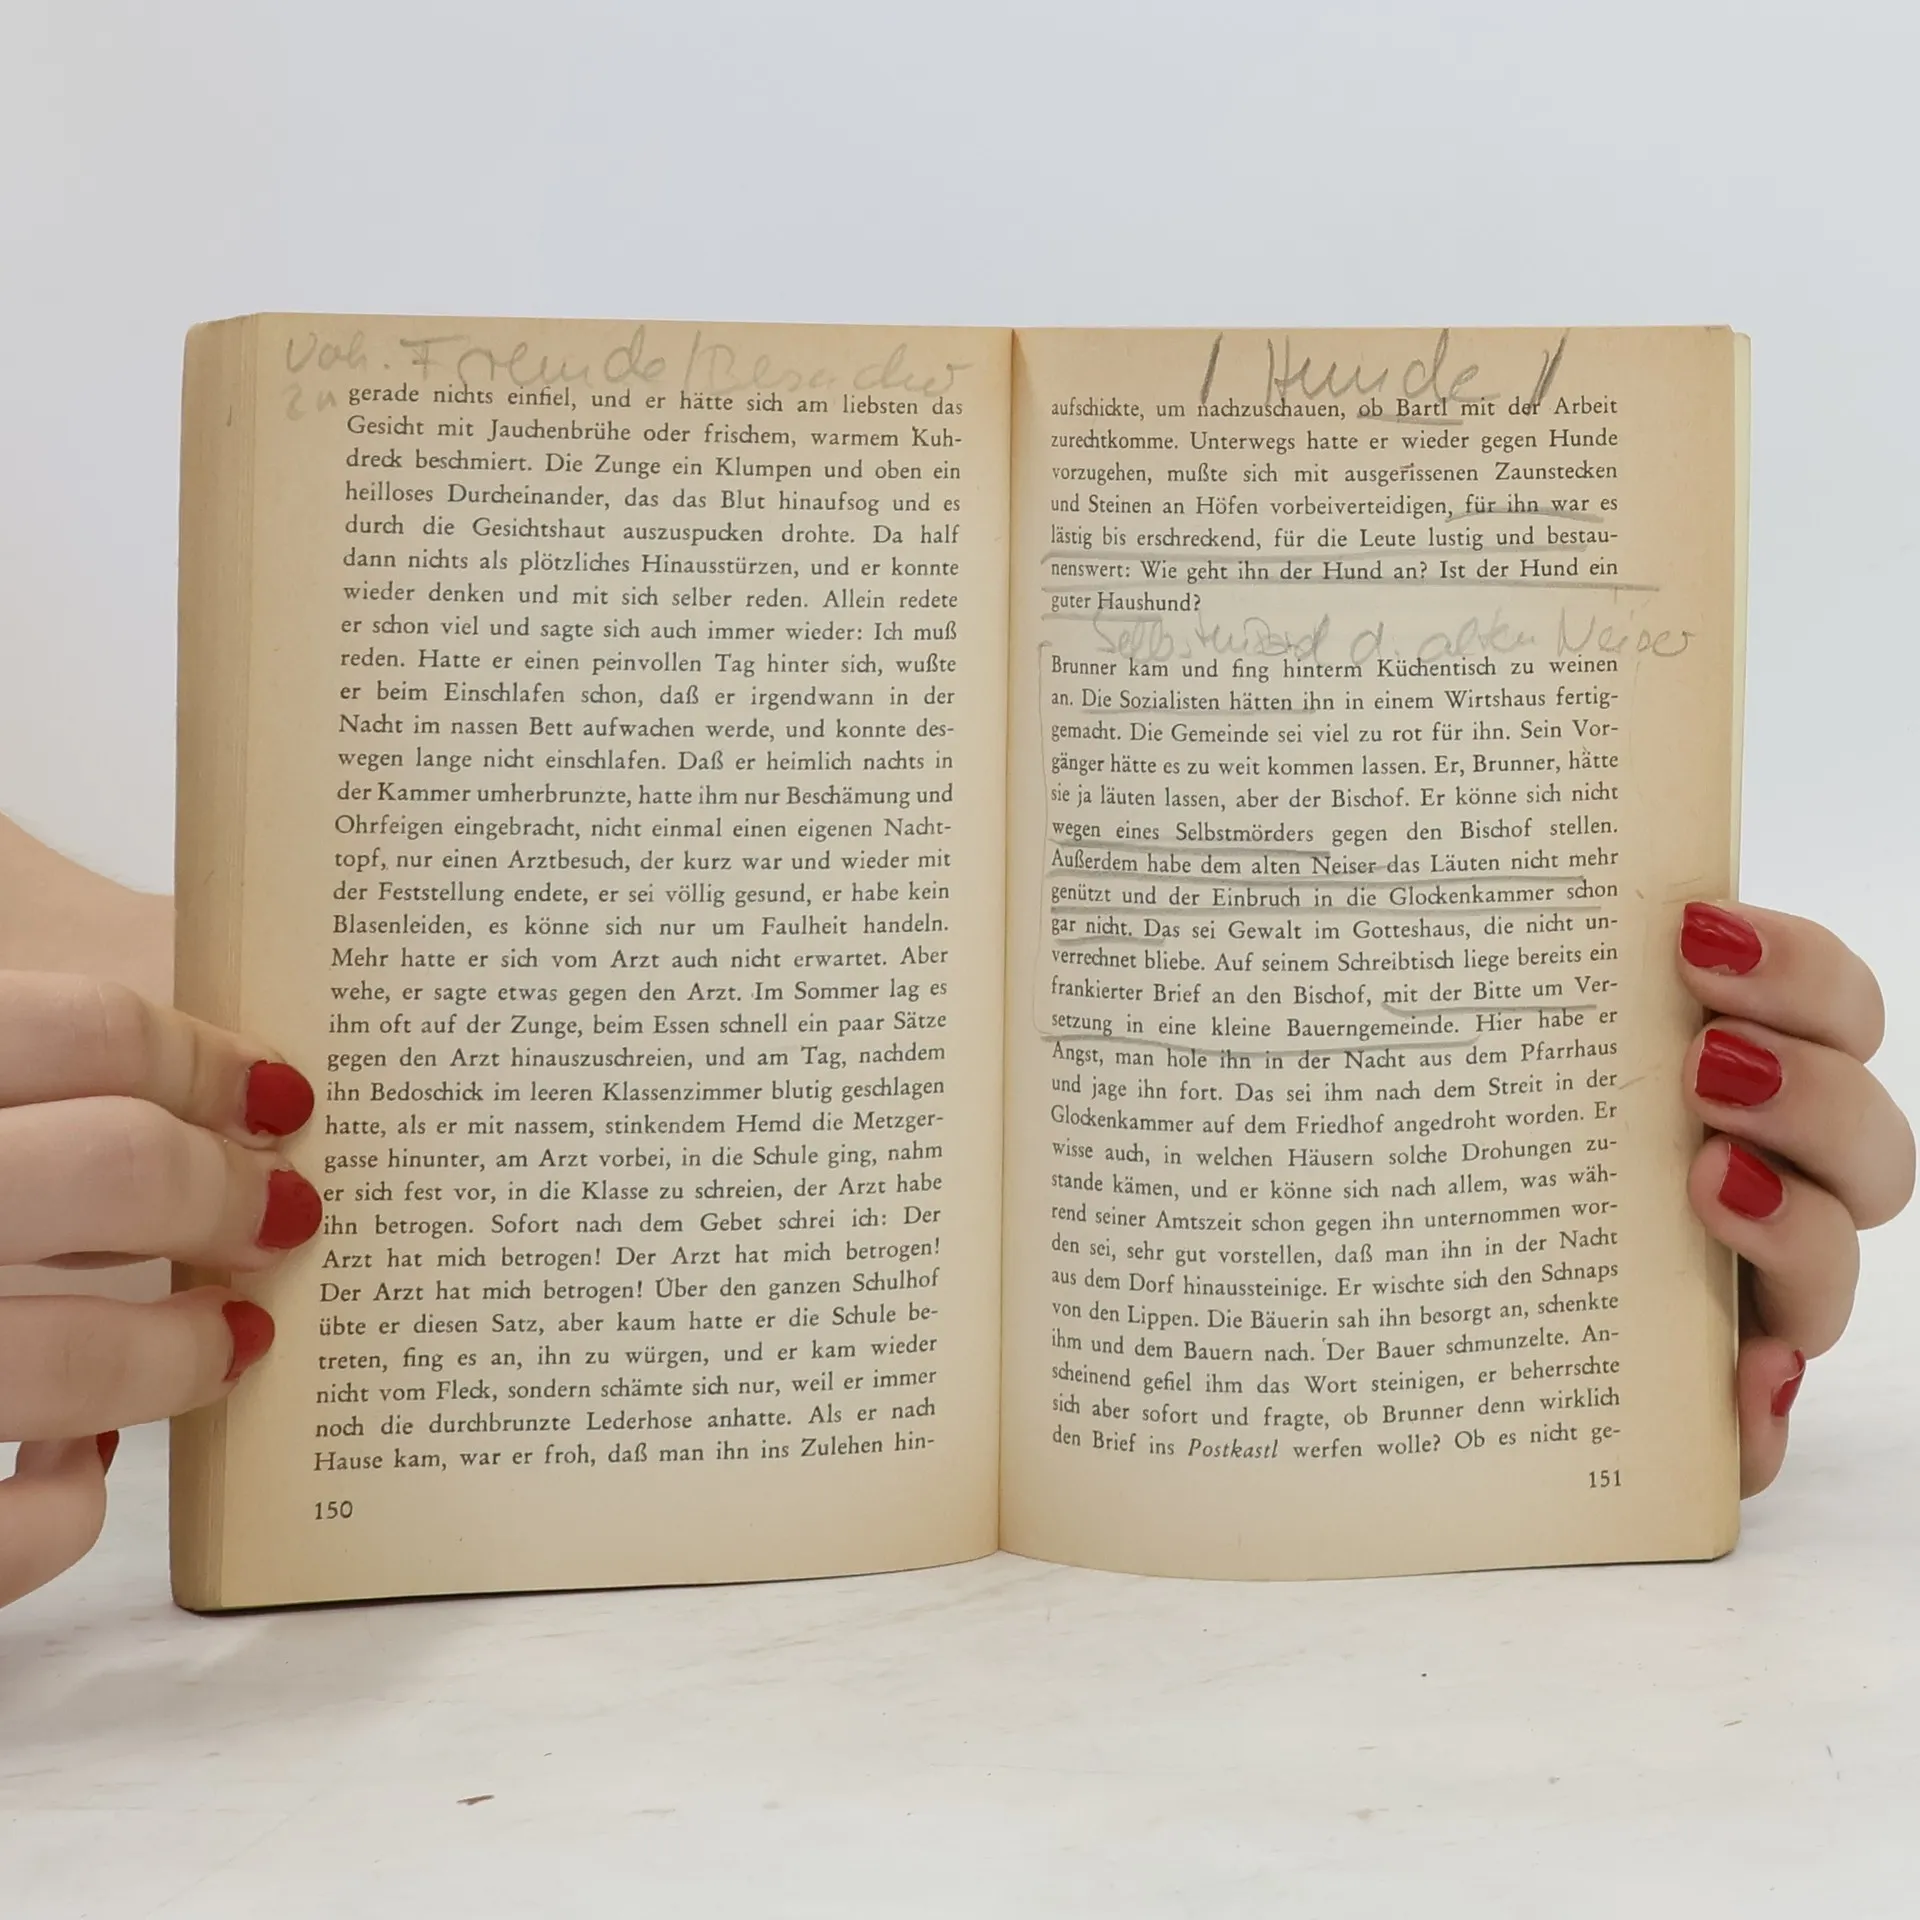 Fremde / Besucher
zu
gerade nichts einfiel, und er hätte sich am liebsten das
Gesicht mit Jauchenbrühe oder frischem, warmem Kuh-
dreck beschmiert. Die Zunge ein Klumpen und oben ein
heilloses Durcheinander, das das Blut hinaufsog und es
durch die Gesichtshaut auszuspucken drohte. Da half
dann nichts als plötzliches Hinausstürzen, und er konnte
wieder denken und mit sich selber reden. Allein redete
er schon viel und sagte sich auch immer wieder: Ich muß
reden. Hatte er einen peinvollen Tag hinter sich, wußte
er beim Einschlafen schon, daß er irgendwann in der
Nacht im nassen Bett aufwachen werde, und konnte des-
wegen lange nicht einschlafen. Daß er heimlich nachts in
der Kammer umherbrunzte, hatte ihm nur Beschämung und
Ohrfeigen eingebracht, nicht einmal einen eigenen Nacht-
topf, nur einen Arztbesuch, der kurz war und wieder mit
der Feststellung endete, er sei völlig gesund, er habe kein
Blasenleiden, es könne sich nur um Faulheit handeln.
Mehr hatte er sich vom Arzt auch nicht erwartet. Aber
wehe, er sagte etwas gegen den Arzt. Im Sommer lag es
ihm oft auf der Zunge, beim Essen schnell ein paar Sätze
gegen den Arzt hinauszuschreien, und am Tag, nachdem
ihn Bedoschick im leeren Klassenzimmer blutig geschlagen
hatte, als er mit nassem, stinkendem Hemd die Metzger-
gasse hinunter, am Arzt vorbei, in die Schule ging, nahm
er sich fest vor, in die Klasse zu schreien, der Arzt habe
ihn betrogen. Sofort nach dem Gebet schrei ich: Der
Arzt hat mich betrogen! Der Arzt hat mich betrogen!
Der Arzt hat mich betrogen! Über den ganzen Schulhof
übte er diesen Satz, aber kaum hatte er die Schule be-
treten, fing es an, ihn zu würgen, und er kam wieder
nicht vom Fleck, sondern schämte sich nur, weil er immer
noch die durchbrunzte Lederhose anhatte. Als er nach
Hause kam, war er froh, daß man ihn ins Zulehen hin-
150
/ Hunde //
aufschickte, um nachzuschauen, ob Bartl mit der Arbeit
zurechtkomme. Unterwegs hatte er wieder gegen Hunde
vorzugehen, mußte sich mit ausgerissenen Zaunstecken
und Steinen an Höfen vorbeiverteidigen, für ihn war es
lästig bis erschreckend, für die Leute lustig und bestau-
nenswert: Wie geht ihn der Hund an? Ist der Hund ein
guter Haushund?
Selbstmord d. alten Neiser
Brunner kam und fing hinterm Küchentisch zu weinen
an. Die Sozialisten hätten ihn in einem Wirtshaus fertig-
gemacht. Die Gemeinde sei viel zu rot für ihn. Sein Vor-
gänger hätte es zu weit kommen lassen. Er, Brunner, hätte
sie ja läuten lassen, aber der Bischof. Er könne sich nicht
wegen eines Selbstmörders gegen den Bischof stellen.
Außerdem habe dem alten Neiser das Läuten nicht mehr
genützt und der Einbruch in die Glockenkammer schon
gar nicht. Das sei Gewalt im Gotteshaus, die nicht un-
verrechnet bliebe. Auf seinem Schreibtisch liege bereits ein
frankierter Brief an den Bischof, mit der Bitte um Ver-
setzung in eine kleine Bauerngemeinde. Hier habe er
Angst, man hole ihn in der Nacht aus dem Pfarrhaus
und jage ihn fort. Das sei ihm nach dem Streit in der
Glockenkammer auf dem Friedhof angedroht worden. Er
wisse auch, in welchen Häusern solche Drohungen zu-
stande kämen, und er könne sich nach allem, was wäh-
rend seiner Amtszeit schon gegen ihn unternommen wor-
den sei, sehr gut vorstellen, daß man ihn in der Nacht
aus dem Dorf hinaussteinige. Er wischte sich den Schnaps
von den Lippen. Die Bäuerin sah ihn besorgt an, schenkte
ihm und dem Bauern nach. Der Bauer schmunzelte. An-
scheinend gefiel ihm das Wort steinigen, er beherrschte
sich aber sofort und fragte, ob Brunner denn wirklich
den Brief ins Postkastl werfen wolle? Ob es nicht ge-
151